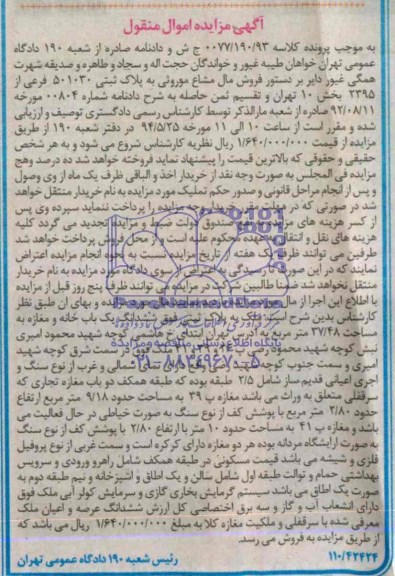 آگهی مزایده اموال منقول
به موجب پرونده کلاسه ۰۰۷۷/۱۹۰/۹۳ ج ش و دادنامه صادره از شعبه ۱۹۰ دادگاه
عمومی تهران خواهان طیبه غیور و خواندگان حجت اله و سجاد و طاهره و صدیقه شهرت
همگی غیور دایر بر دستور فروش مال مشاع موروثی به پلاک ثبتی ۵۰۱۰۳۰ فرعی از
۲۳۹۵ بخش ۱۰ تهران و تقسیم ثمن حاصله به شرح دادنامه شماره ۰۰۸۰۴ مورخه
۹۲/۰۸/۱۱ صادره از شعبه مارالذکر توسط کارشناس رسمی دادگستری توصیف و ارزیابی
شده و مقرر است از ساعت ۱۰ الی ۱۱ مورخه ۹۴/۵/۲۵ در دفتر شعبه ۱۹۰ از طریق
مزایده از قیمت ۱/۶۴۰/۰۰۰/۰۰۰ ریال نظریه کارشناس شروع می شود و به هر شخص
حقیقی و حقوقی که بالاترین قیمت را پیشنهاد نماید فروخته خواهد شد ده درصد وهج
مزایده فی المجلس به صورت وجه نقد از خریدار اخذ و الباقی ظرف یک ماه از وی وصول
و پس از انجام مراحل قانونی و صدور حکم تملیک مورد مزایده به نام خریدار منتقل خواهد
شد در صورتی که در مهلت مقرر خریدار وجه مزایده را پرداخت ننماید سپرده وی پس
از کسر هزینه های مزایده به نفع صندوق دولت ضبط و مزایده تجدید می گردد کلیه
هزینه های نقل و انتقال به عهده محکوم علیه است که از محل فروش پرداخت خواهد شد
طرفین می توانند ظرف یک هفته از تاریخ مزایده نسبت به نحوه انجام مزایده اعتراض
نمایند که در این صورت تا رسیدگی به اعتراض از سوی دادگاه مورد مزایده به نام خریدار
منتقل نخواهد شد ضمنا طالبین شرکت در مزایده می توانند ظرف پنج روز قبل از مزایده
با اطلاع این اجرا از مال مورد مزایده بازدید نمایند و بهای ان طبق نظر
کارشناس بدین شرح است: ملک به پلاک ثبتی فوق ششدانگ یک باب خانه و مغازه به
مساحت ۳۷/۴۸ متر مربع به آدرس تهران ابتدای خ هاشمی کوچه شهید محمود امیری
نبش کوچه شهید محمود رضی پ ملک فوق در سمت شرق کوچه شهید
امیری و سمت جنوب کوچه شهید شمالی و غرب از نوع سنگ و
اجری اعیانی قدیم ساز شامل ۲/۵ طبقه بوده که طبقه همکف دو باب مغازه تجاری که
سرقفلی متعلق به وراث می باشد مغازه پ ۳۹ به مساحت حدود ۹/۱۸ متر مربع ارتفاع
حدود ۲/۸۰ متر مربع با پوشش کف از نوع سنگ به صورت خیاطی در حال فعالیت می
باشد و مغازه پ ۴۱ به مساحت حدود ۱۰ متر با ارتفاع ۲/۸۰ با پوشش کف از نوع سنگ
به صورت آرایشگاه مردانه بوده هر دو مغازه دارای کرکره است و سمت غربی از نوع پروفیل
فلزی و شیشه می باشد قیمت مسکونی در طبقه همکف شامل راهرو ورودی و سرویس
بهداشتی حمام و توالت طبقه اول شامل سالن و یک اطاق و اشپزخانه و نیم طبقه دوم به
صورت یک اطاق می باشد سیستم گرمایش بخاری گازی و سرمایش کولر آبی ملک فوق
دارای انشعاب آب و گاز و سه برق اختصاصی کل ارزش ششدانگ عرصه و اعیان ملک
معرفی شده با سرقفلی و ملکیت مغازه کلا به مبلغ ۱/۶۴۰/۰۰۰/۰۰۰ ریال می باشد که
از طریق مزایده به فروش می رسد.
۱۱۰/۴۲۴۲۴ رئیس شعبه ۱۹۰ دادگاه عمومی تهران
پایگاه اطلاع رسانی مناقصه و مزایده
۰۲۱-۸۸۳۴۹۶۷۰-۵